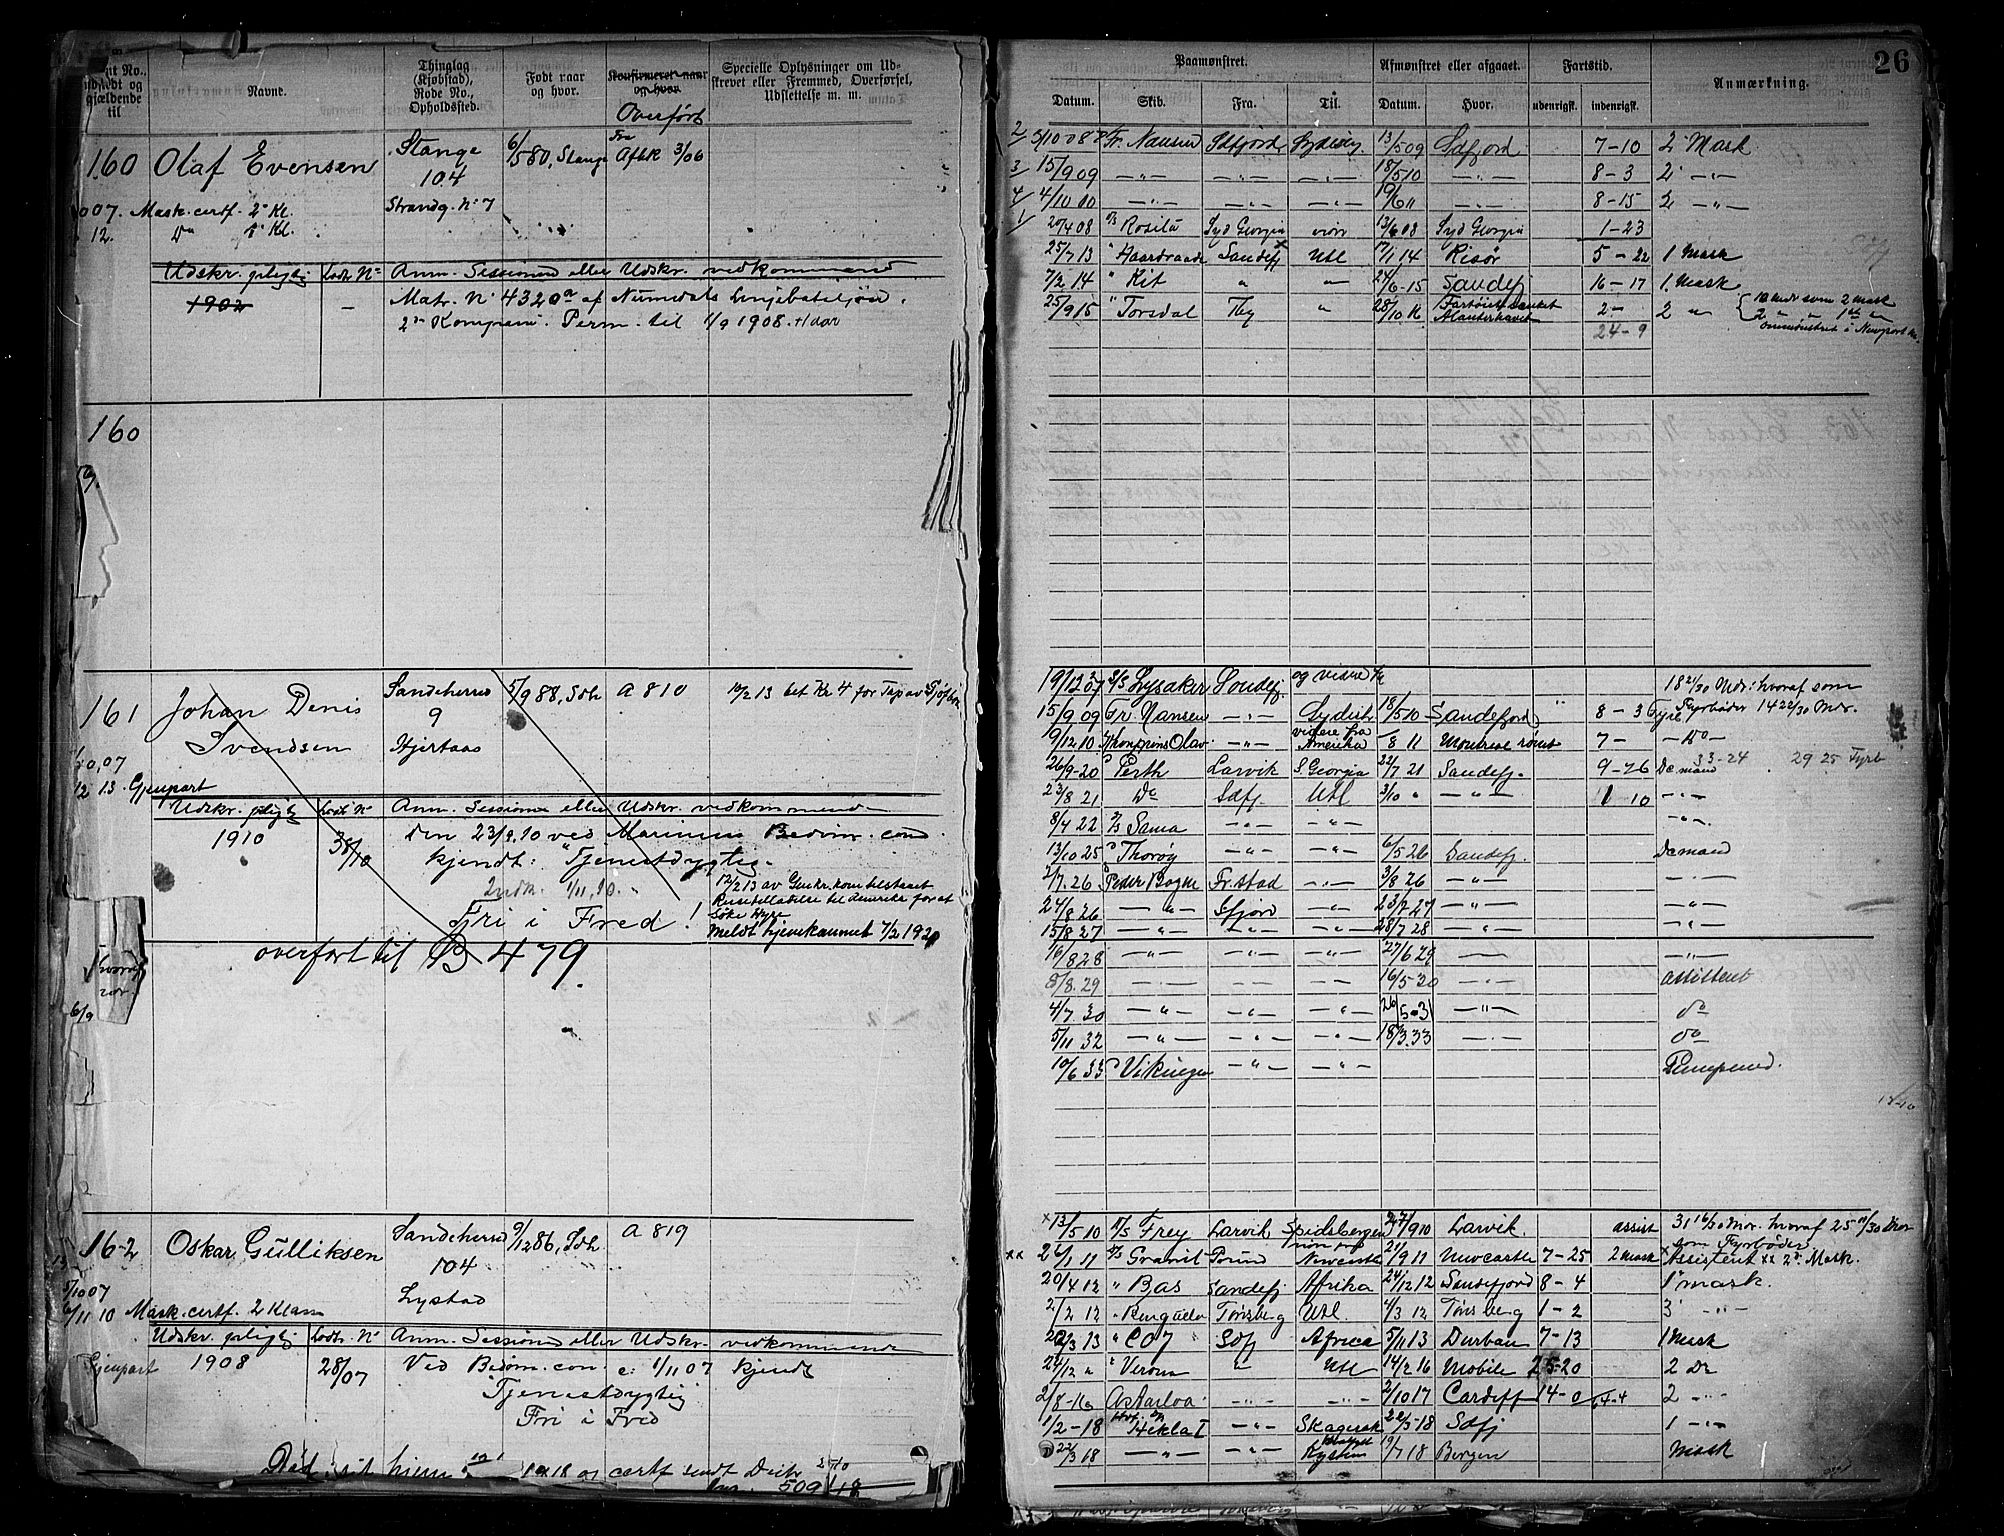 26
nt No.,
udstedt og
gjældende
til
Navnt.
Thinglag
(Kjøbstad),
Rode No.,
Opholdssted.
Født naar
og hvor.
Konfirmeret naar
og hvor
Overført
Specielle Oplysninger om Ud-
skrevet eller Fremmed, Overførsel,
Udslettelse m. m.
160 Olaf Evensen Stange 6/5 80, Stange Fra Afbk 3/06
104
Strandg. No 7
07. Mask. certf. 2 Kl.
12. Do 1 Kl.
Udskr. pligtig Lodtr. No Anm. Sessioner eller Udskr. vedkommend
1902 – Matr. No 4320a af Numedals Linjebataljon.
2den Kompani. Perm. til 1/9 1908.
160
161 Johan Denis Sandeherred 5/9 88, Sdh A 810 10/2 13 bet Kr 4 for Tap av Sjøfbn
Svendsen 9
Hjertaas
10,07
12 13. Gjenpart
Udskr. pligtig Lodtr. No Anm. Sessioner eller Udskr. vedkommende
1910 38/10 den 23/9.10 ved Marinens Bedøm. com.
kjendt: "Tjenestdygtig".
Indk. 1/11.10.
12/2 13 av
Fri i Fred!
Meldt hjemkommet 7/2 1920
overført til B 479.
162 Oskar Gulliksen Sandeherred 9/12 86, Sdh. A 819
104
Lystad
5/10 07
6/11 10 Mask. certf. 2 Klasse
Udskr. pligtig Lodtr. No Anm. Sessioner eller Udskr. vedkommende
Gjenpart 1908 28/07 Ved Bedøm. com. 1/11 07 kjendt
Tjenestdygtig
Fri i Fred
Død 18 og certf sendt
509/18
Paamønstret.
Afmønstret eller afgaaet.
Fartstid.
Anmærkning.
Datum. Skib. Fra. Til. Datum. Hvor. udenrigsk. indenrigsk.
2/ 5/10 08 Fr. Nansen Sdfjord Sydishv. 13/5 09 Sdfjord 7–10 2 Mask
3/ 15/9 09 –"– –"– –"– 18/5 10 –"– 8–3 2 –"–
4/ 4/10 10 –"– –"– –"– 19/6 11 –"– 8–15 2 –"–
1/ 2/4 08 Rosita Syd Georgia 13/6 08 Syd Georgia 1–23
25/7 13 " Haardraade Sandefj Utl 17/1 14 Risør 5–22 1 Mask
7/2 14 " Kit " " 24/6–15 Sandefj 16–17 1. Mask
25/9 15 " Torsdal Tby " 28/10 16 Fartøiet sunket 2– 2 "
Atlanterhavet
24–9
19/12 07 S/S Lysaker Sandefj og videre
18 21/30 Mdr. hvoraf som
15/9 09 Fr. Nansen –"– Sydishv 18/5 10 Sandefjord " 8–3 Fyrbøder 14 22/30 Mdr.
19/12 10 Kronprins Olav –"– videre fra Amerika 8 11 Montreal rømt 7– –Do–
33–24 29 25 Fyrb
26/9–20 Perth Larvik S. Georgia 22/7 21 Sandefj. 9–26 Dmand
23/8 21 Do Sdfj. Utl 3/10 " –"– 1–10 –"–
8/4 22 S/S Sama –"– –"– –"–
13/10 25 " Thorøy –"– –"– 6/5 26 Sandefj. Dmand
2/7. 26 Peder Bogen Fr. stad –"– 3/8 26 –"– –"–
24/8 26 –"– Sfjord –"– 23/7 27 –"– –"–
15/8 27 –"– –"– –"– 28/7 28 –"– –"–
16/8 28 –"– –"– –"– 27/6 29 –"– –"–
8/8. 29 –"– –"– –"– 16/5–30 –"– assistent
4/7. 30 –"– –"– –"– 26/5–31 –"– do
5/11 32 –"– –"– –"– 18/3.33 –"– do
10/6 33 " Vikingen –"– –"– Pumpemd.
x 13/5 10 S/S Frey Larvik Spidsbergen 27/9 10 Larvik assist 31 16/30 Mdr. hvoraf 25 11/30 Mdr
som Fyrbøder
xx 26/1 11 S/S Granit Newcastle 21/9 11 Newcastle 7–25 2 mask x Assistent xx 2d. Mask.
20/4 12 " Bas Sandefj Afrika 24/12 12 Sandefjord 8–4 1 mask.
2/2 12 Tønsberg Utl. 4/3 12 Tønsberg 1–2 3 –"–
20/3 13 " C07 Sdfj Africa 5/11 13 Durban 7–13 1 Mask
24/12 " " Verona " Utl 14/2 16 Mobile 25–20 2 Do
2/8–16 –"– –"– 2/10 17 Cardiff 14–0 2 –"–
1/2–18 Hekla I –"– Skagerak 22/3–18 Sdfj 1 –"–
22/3 18 –"– –"– Kysten 19/7 18 Bergen Mask